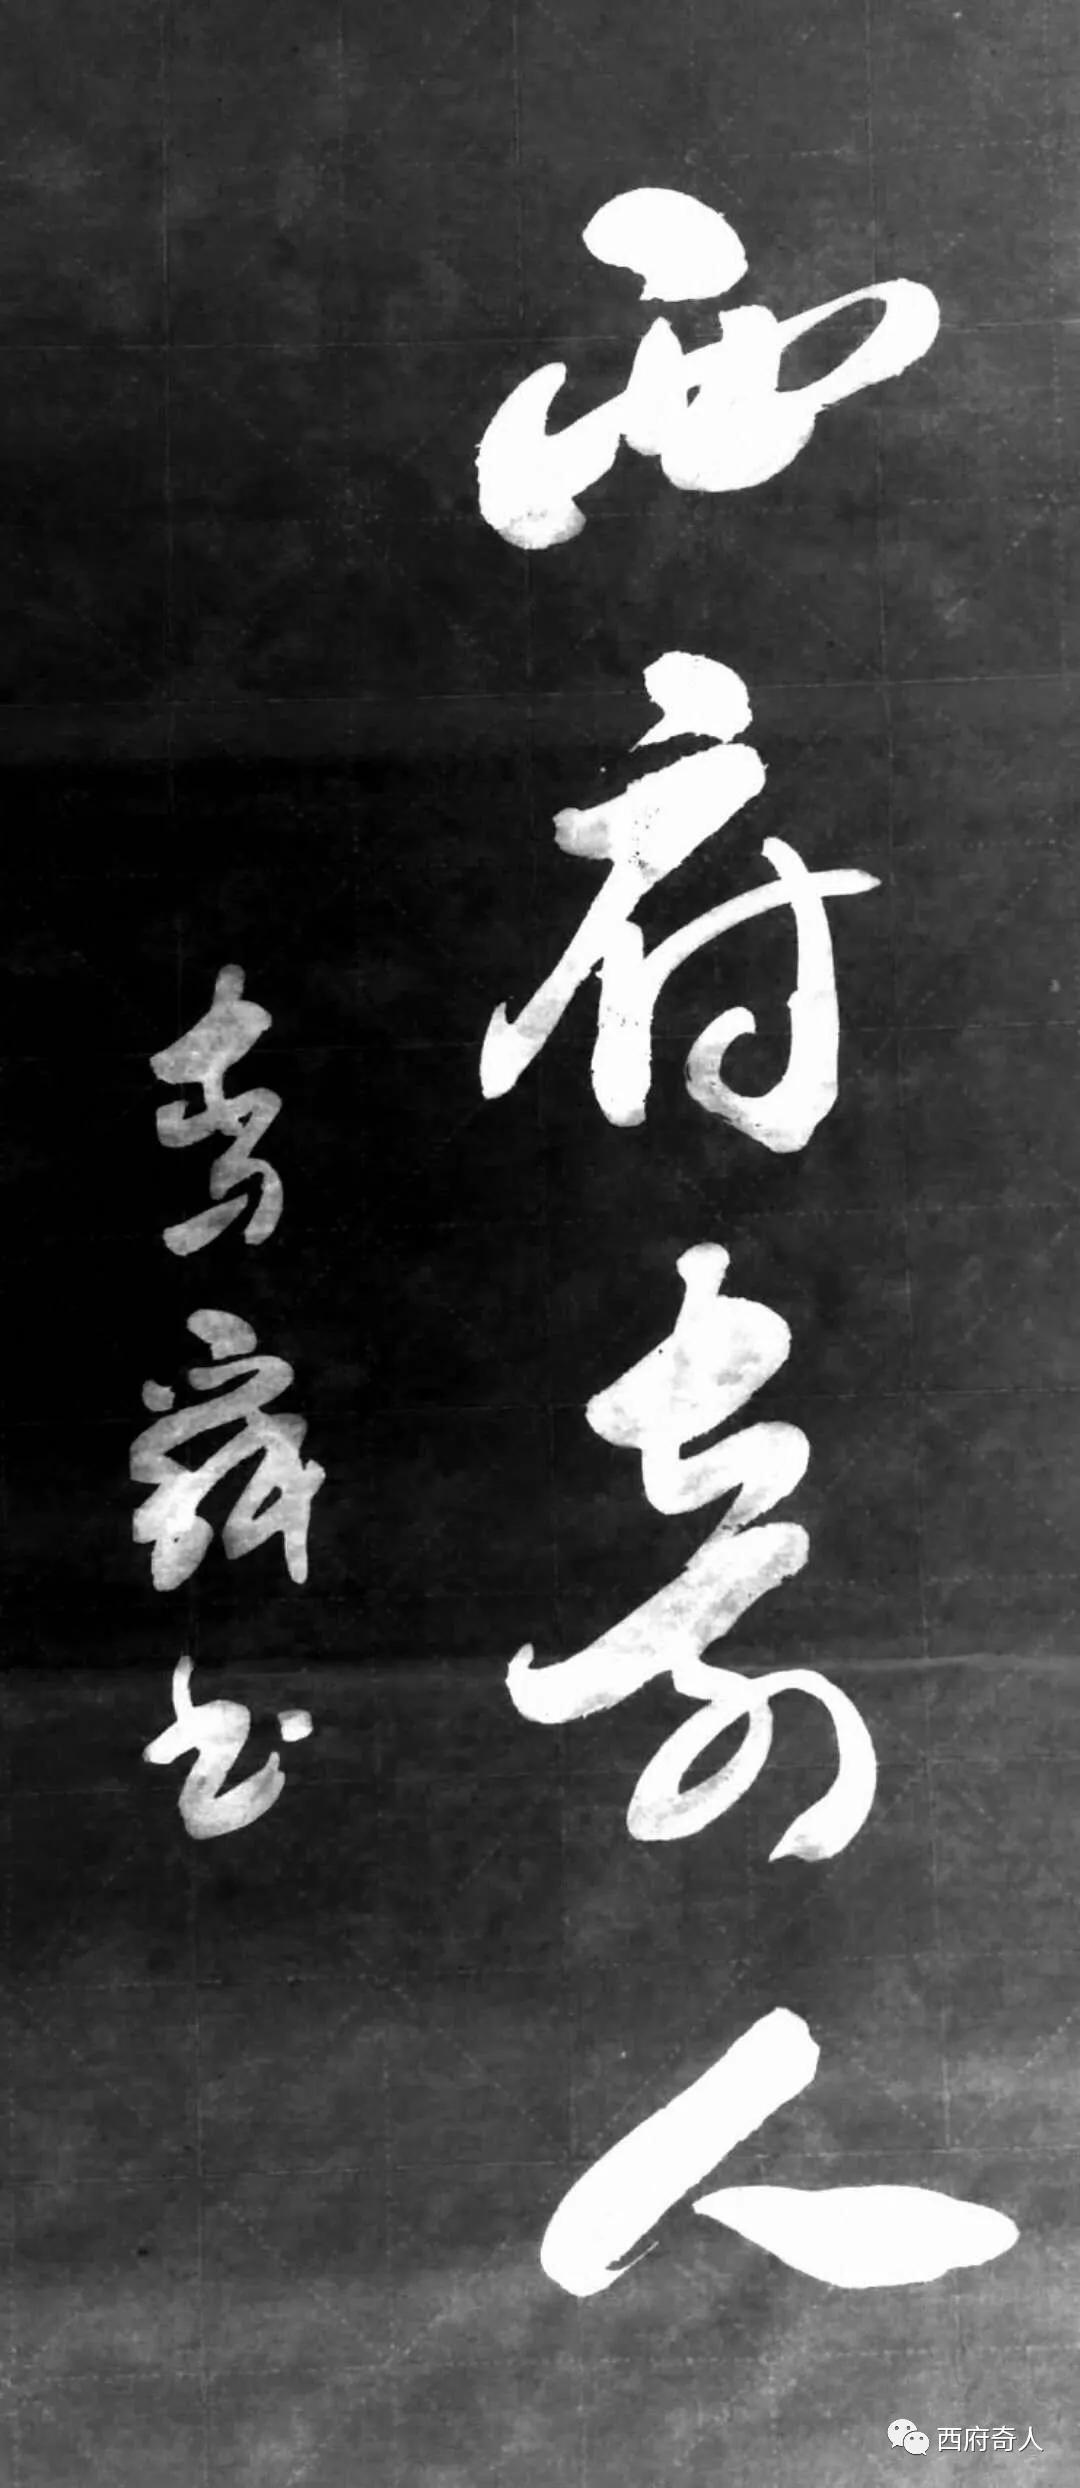 西府奇人
舜书
西府奇人